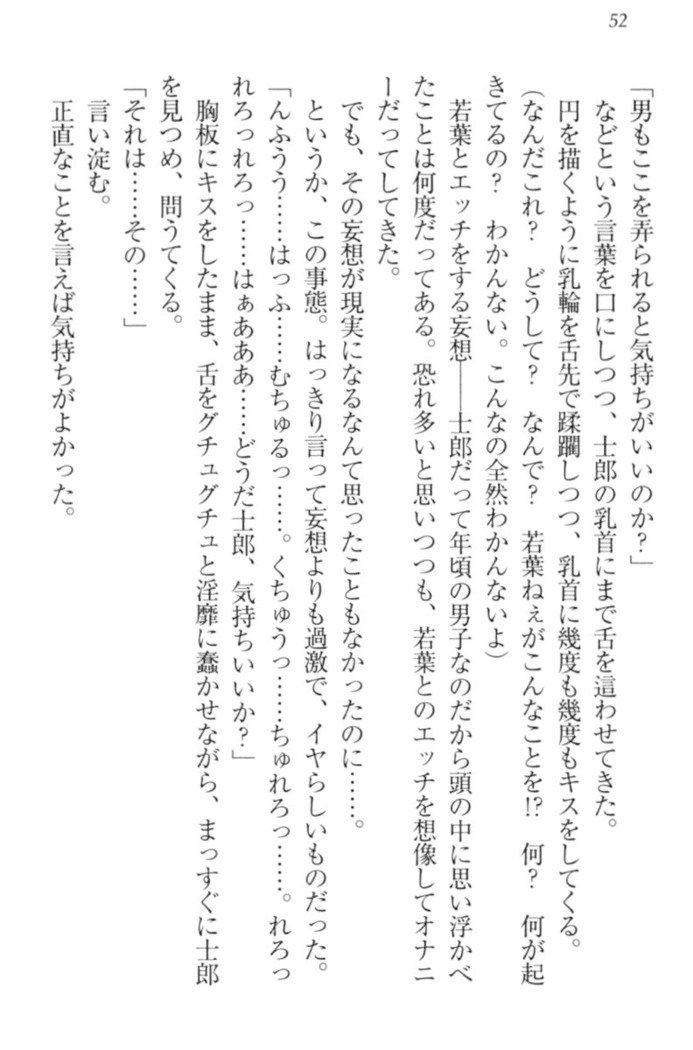 52
「男もここを弄られると気持ちがいいのか?」
などという言葉を口にしつつ、士郎の乳首にまで舌を這わせてきた。
円を描くように乳輪を舌先で蹂躙しつつ、乳首に幾度も幾度もキスをしてくる。
(なんだこれ? どうして? なんで? 若葉ねぇがこんなことを!? 何? 何が起
きてるの? わかんない。こんなの全然わかんないよ)
若葉とエッチをする妄想――士郎だって年頃の男子なのだから頭の中に思い浮かべ
たことは何度だってある。恐れ多いと思いつつも、若葉とのエッチを想像してオナニ
ーだってしてきた。
でも、その妄想が現実になるなんて思ったこともなかったのに……。
というか、この事態。はっきり言って妄想よりも過激で、イヤらしいものだった。
「んふうう……はっふ……むちゅるっ……。くちゅうっ……ちゅれろっ……。れろっ
れろっれろっ……はぁあああ……どうだ士郎、気持ちいいか?」
胸板にキスをしたまま、舌をグチュグチュと淫靡に蠢かせながら、まっすぐに士郎
を見つめ、問うてくる。
「それは……その……」
言い淀む。
正直なことを言えば気持ちがよかった。